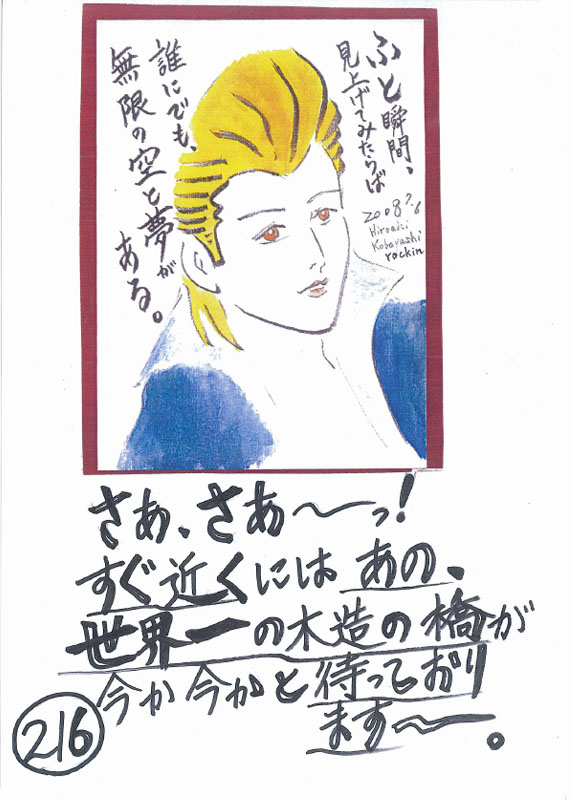 ふと瞬間、
見上げてみたらば
誰にでも、
無限の空と夢が
ある。
2008 7/6
Hiroaki
Kobayashi
rockin
さあ、さあ〜っ!
すぐ近くには あの、
世界一の木造の橋が
今か今かと待っており
ます〜。
216